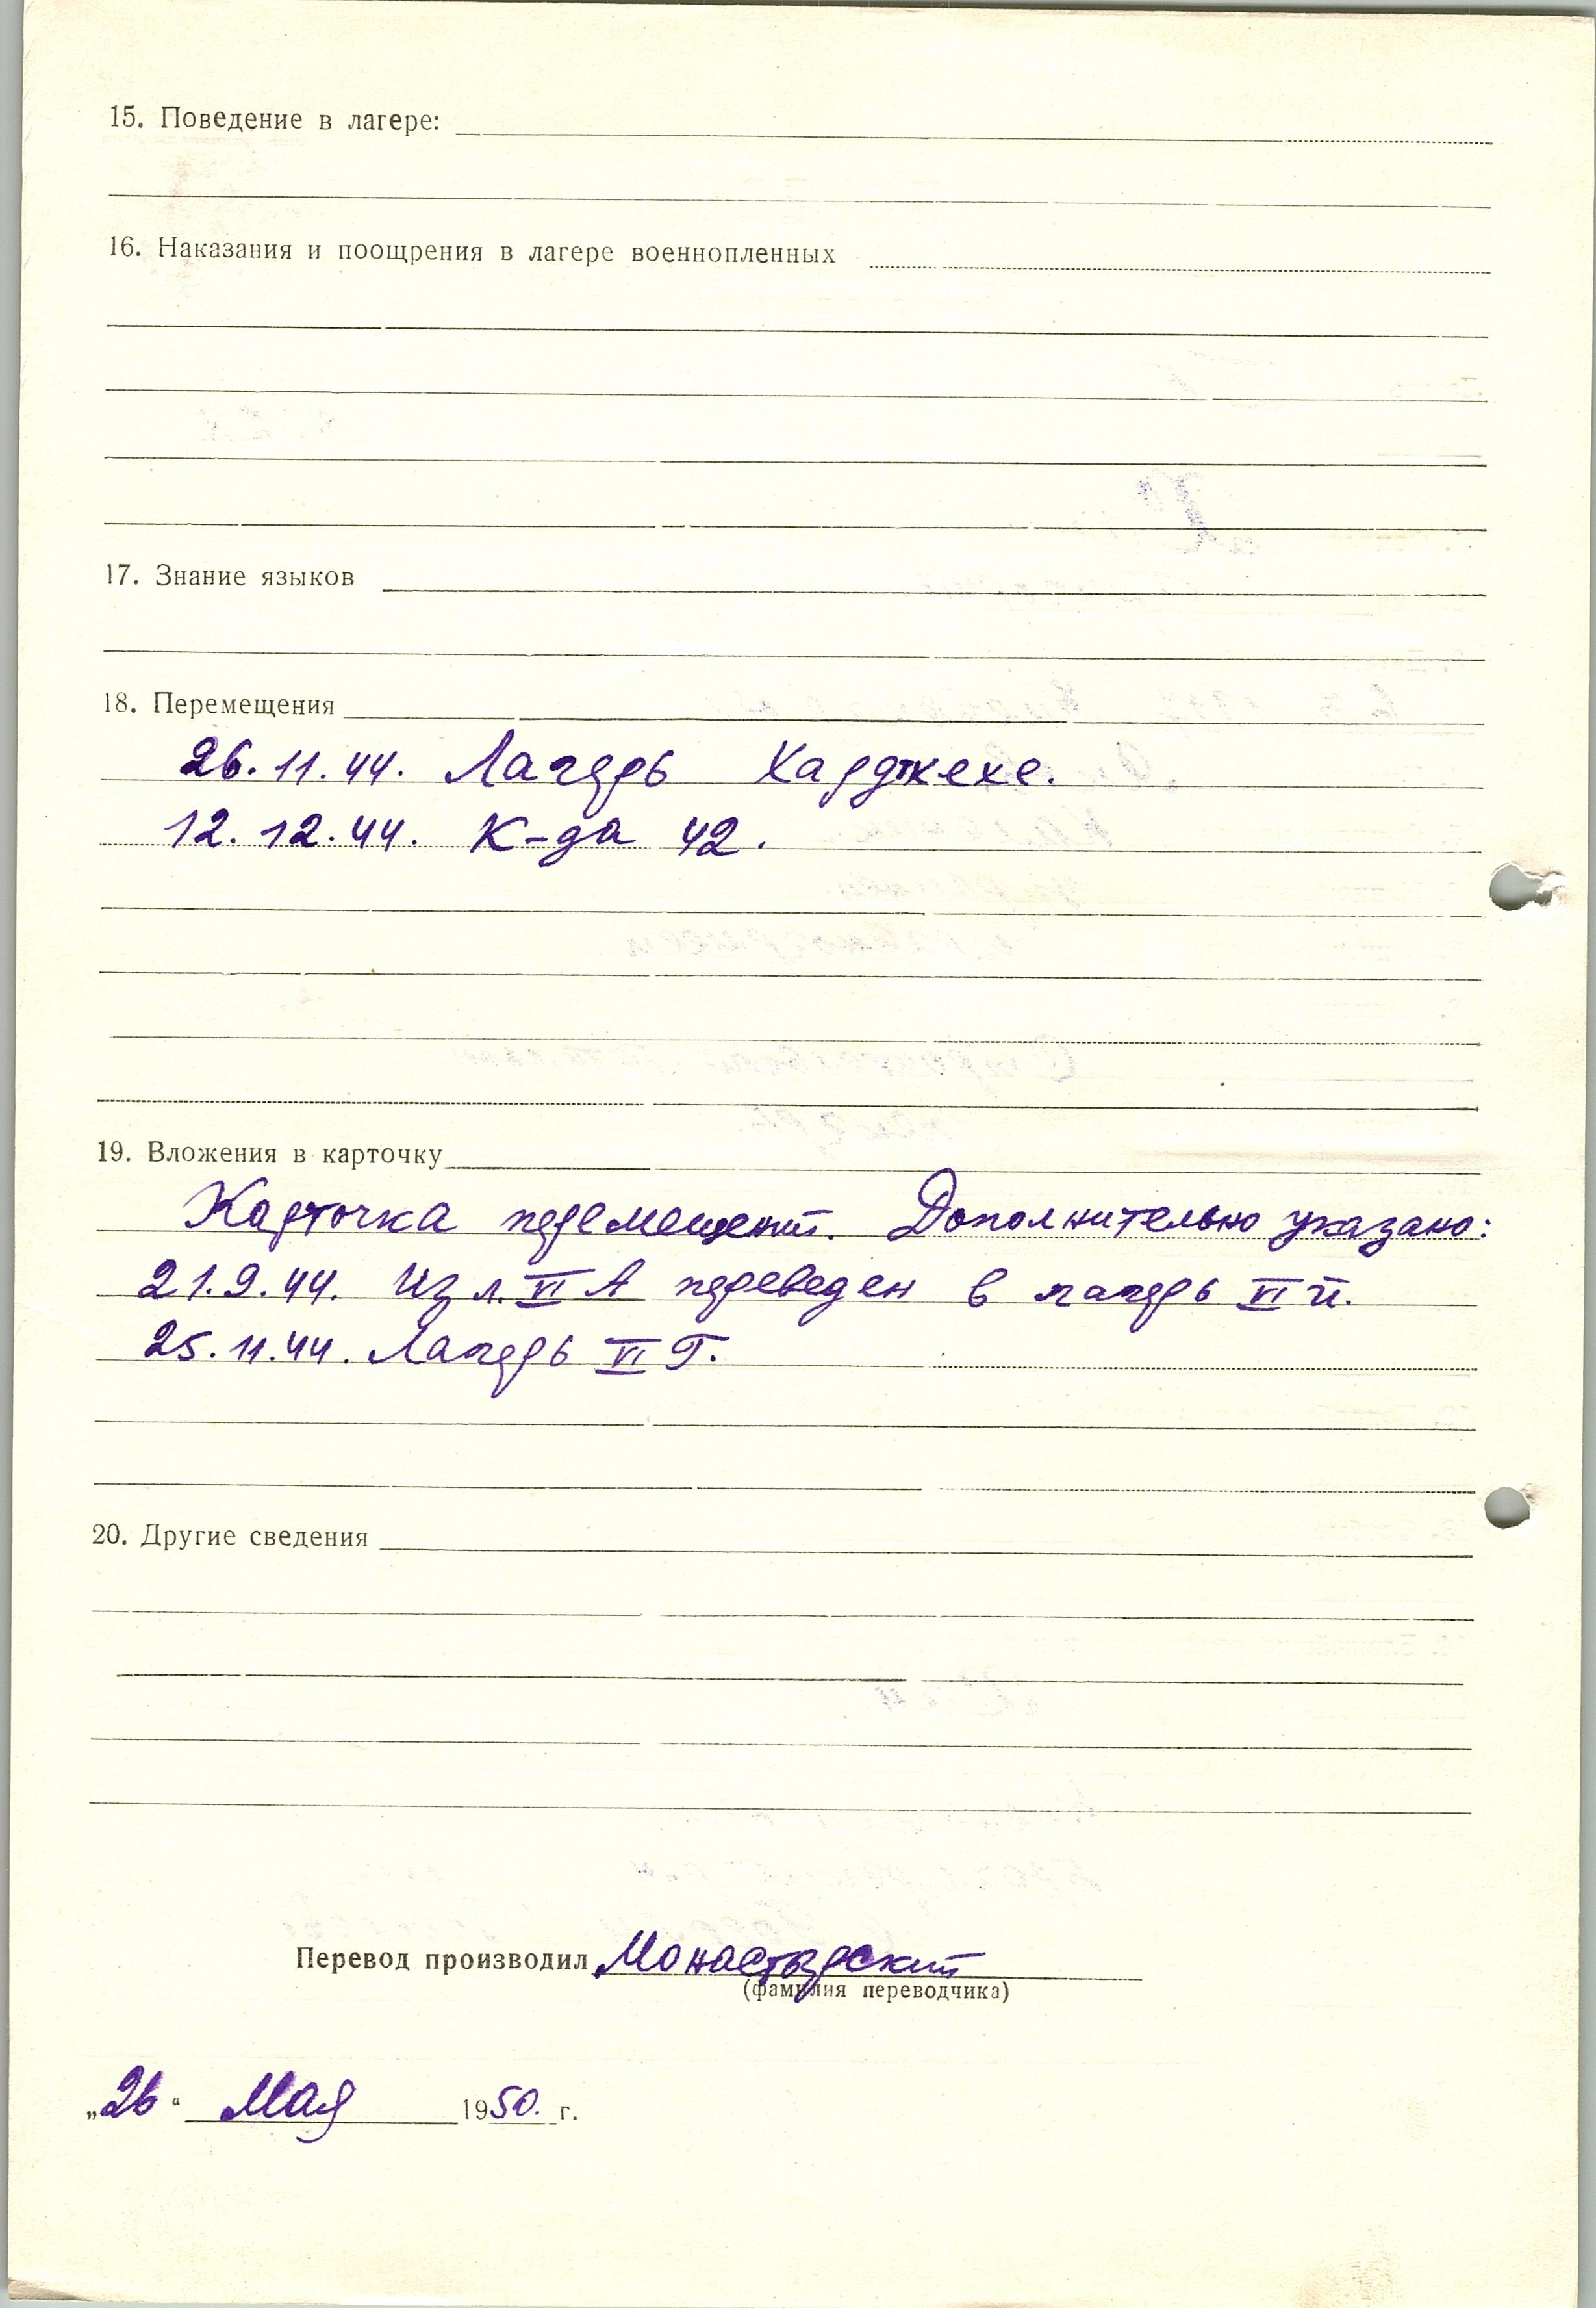 15. Поведение в лагере:
16. Наказания и поощрения в лагере военнопленных
17. Знание языков
18. Перемещения
26.11.44. Лагерь Харджехе.
12.12.44. К-да 42.
19. Вложения в карточку
Карточка перемещений. Дополнительно указано:
21.9.44. Из л. VI А переведен в лагерь VI й.
25.11.44. Лагерь VI Г.
20. Другие сведения
Перевод производил Монастырский
(фамилия переводчика)
„26“ Мая 1950. г.